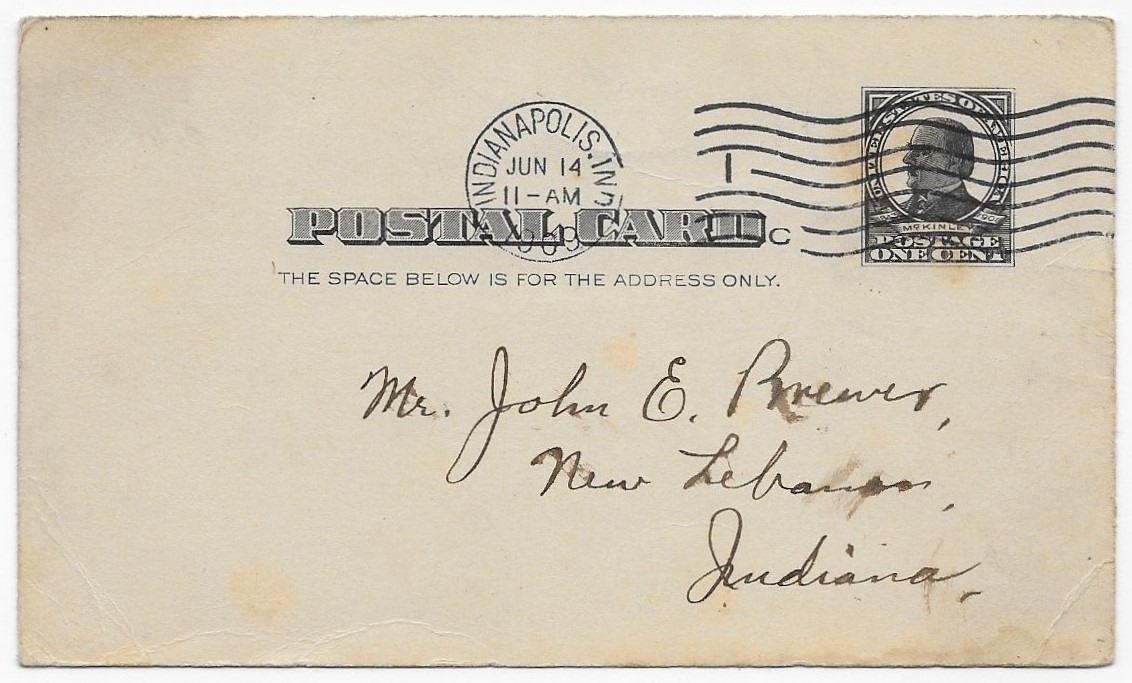 INDIANAPOLIS, IND.
JUN 14
11-AM
1909
1
C
UNITED STATES OF AMERICA
1843 1901
McKINLEY
POSTAGE
ONE CENT
POSTAL CARD
THE SPACE BELOW IS FOR THE ADDRESS ONLY.
Mr. John E. Brewer,
New Lebanon,
Indiana.